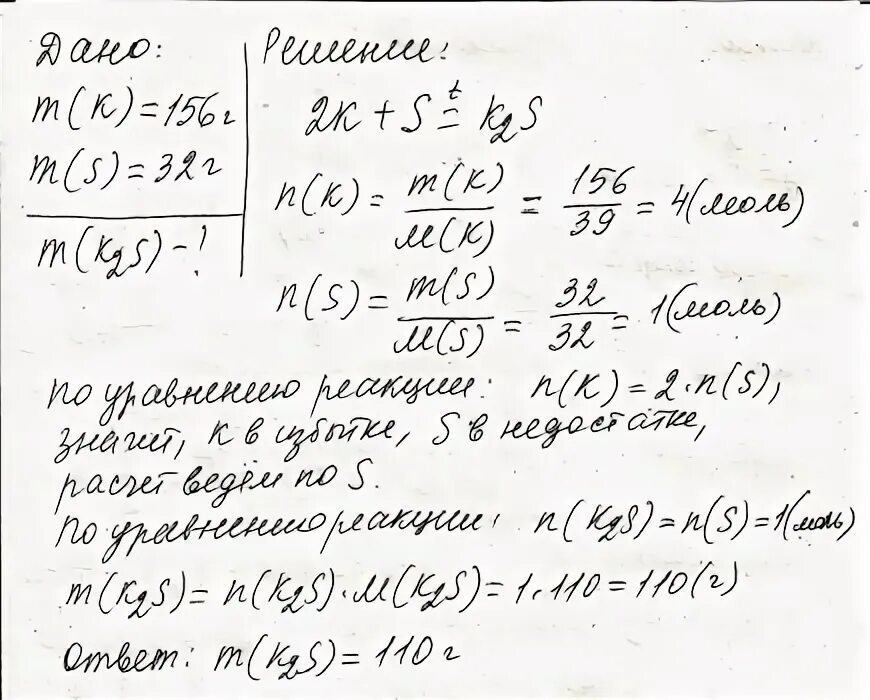 Дано:
m(K)=156г
m(S)=32г
m(K₂S)-?
Решение:
2K+S =ᵗ K₂S
n(K) = m(K)/M(K) = 156/39 = 4(моль)
n(S) = m(S)/M(S) = 32/32 = 1(моль)
по уравнению реакции: n(K)=2·n(S),
значит, K в избытке, S в недостатке,
расчет ведём по S.
По уравнению реакции: n(K₂S)=n(S)=1(моль)
m(K₂S)= n(K₂S)·M(K₂S)=1·110=110(г)
Ответ: m(K₂S)=110г